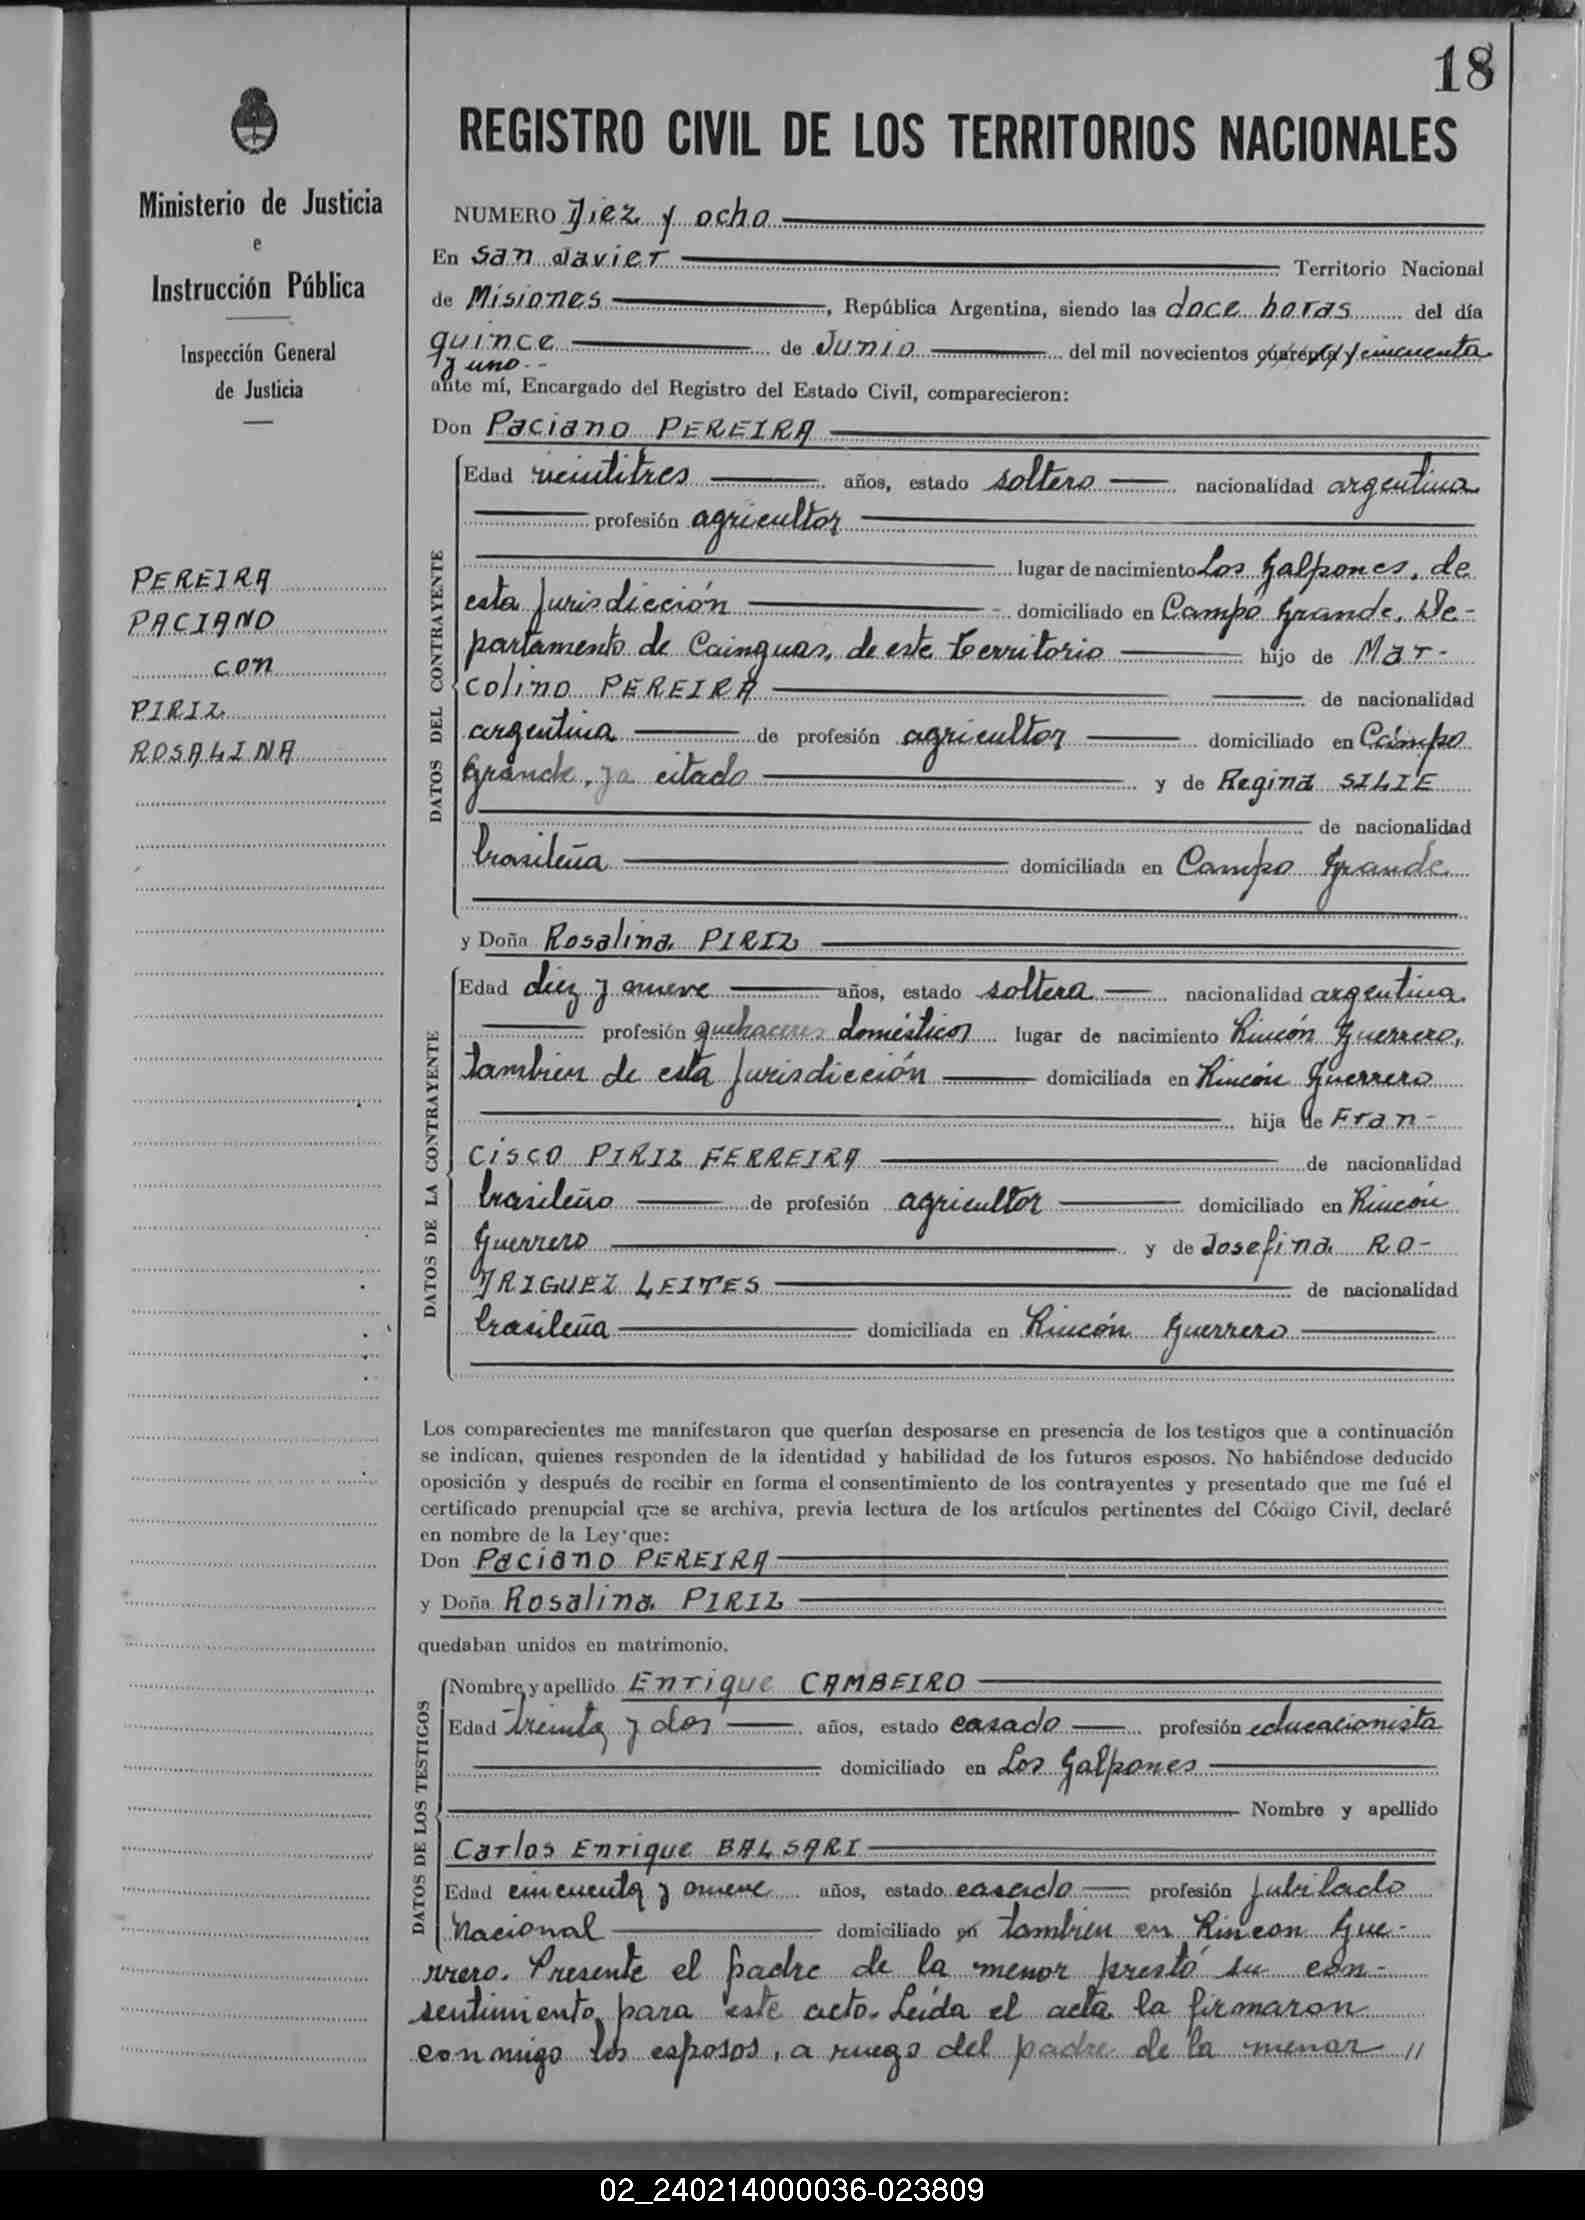 18
REGISTRO CIVIL DE LOS TERRITORIOS NACIONALES
Ministerio de Justicia
e
Instrucción Pública
Inspección General
de Justicia
PEREIRA
PACIANO
con
PIRIZ
ROSALINA
NUMERO Diez y ocho
En San Javier Territorio Nacional
de Misiones, República Argentina, siendo las doce horas del día
quince de Junio del mil novecientos cuarenta y cincuenta
y uno.--
ante mí, Encargado del Registro del Estado Civil, comparecieron:
Don Paciano PEREIRA
DATOS DEL CONTRAYENTE
Edad veintitres años, estado soltero nacionalidad argentina
profesión agricultor
lugar de nacimiento Los Galpones, de
esta Jurisdicción domiciliado en Campo Grande, De-
partamento de Cainguas, de este Territorio hijo de Mar-
colino PEREIRA de nacionalidad
argentina de profesión agricultor domiciliado en Campo
Grande, ya citado y de Regina SILIE
de nacionalidad
brasileña domiciliada en Campo Grande
y Doña Rosalina PIRIZ
DATOS DE LA CONTRAYENTE
Edad diez y nueve años, estado soltera nacionalidad argentina
profesión quehaceres domésticos lugar de nacimiento Rincón Guerrero,
tambien de esta Jurisdicción domiciliada en Rincón Guerrero
hija de Fran-
cisco PIRIZ FERREIRA de nacionalidad
brasileño de profesión agricultor domiciliado en Rincón
Guerrero y de Josefina RO-
DRIGUEZ LEITES de nacionalidad
brasileña domiciliada en Rincón Guerrero
Los comparecientes me manifestaron que querían desposarse en presencia de los testigos que a continuación
se indican, quienes responden de la identidad y habilidad de los futuros esposos. No habiéndose deducido
oposición y después de recibir en forma el consentimiento de los contrayentes y presentado que me fué el
certificado prenupcial que se archiva, previa lectura de los artículos pertinentes del Código Civil, declaré
en nombre de la Ley que:
Don Paciano PEREIRA
y Doña Rosalina PIRIZ
quedaban unidos en matrimonio.
DATOS DE LOS TESTIGOS
Nombre y apellido Enrique CAMBEIRO
Edad treinta y dos años, estado casado profesión educacionista
domiciliado en Los Galpones
Nombre y apellido
Carlos Enrique BALSARI
Edad cincuenta y nueve años, estado casado profesión Jubilado
Nacional domiciliado en tambien en Rincon Gue-
rrero. Presente el padre de la menor prestó su con-
sentimiento para este acto. Leída el acta la firmaron
conmigo los esposos, a ruego del padre de la menor //
02_240214000036-023809